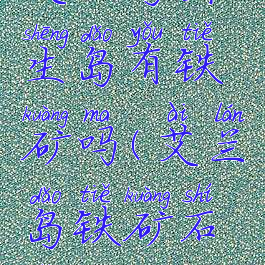 shēng dǎo yǒu tiě
生岛有铁
kuàng ma ài lán
矿吗(艾兰
dǎo tiě kuàng shí
岛铁矿石